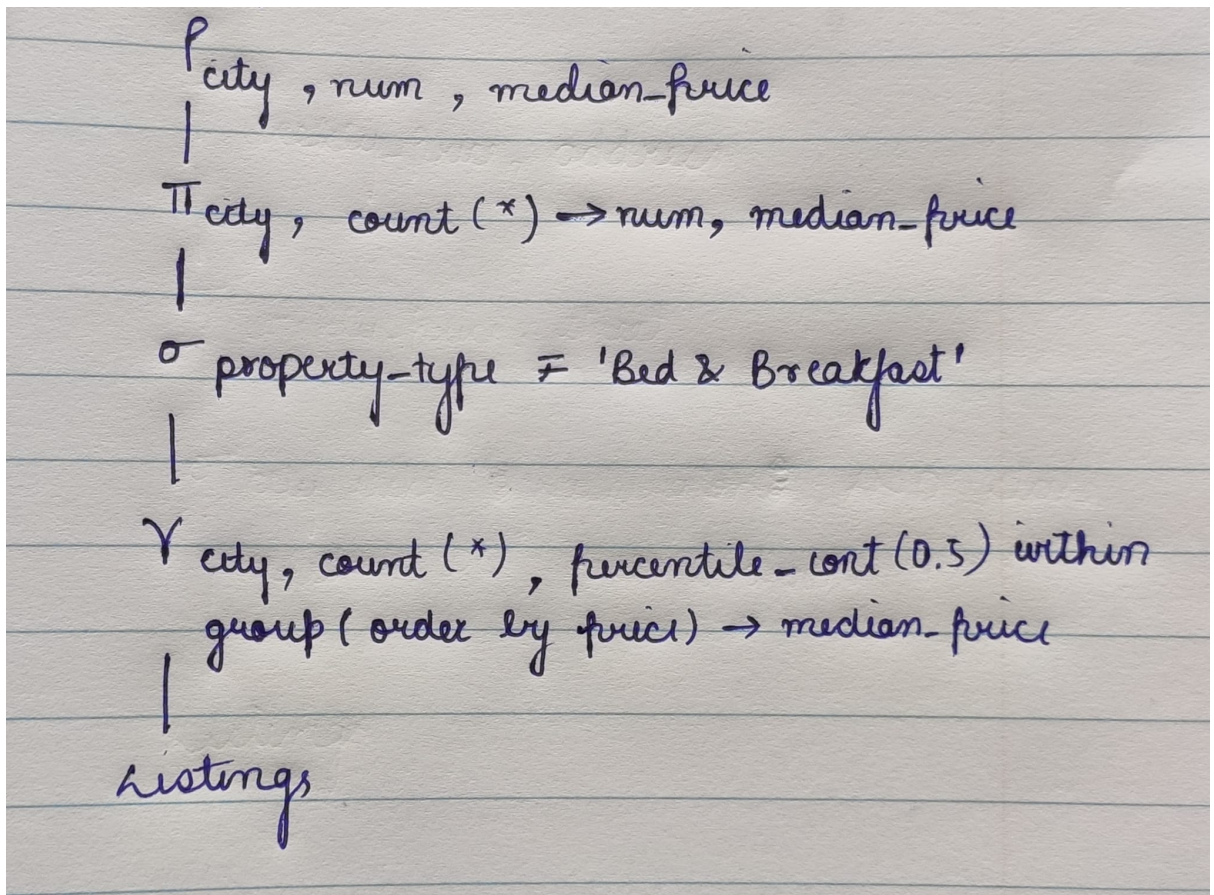 ρ city, num, median_price
π city, count(*) → num, median_price
σ property_type ≠ 'Bed & Breakfast'
γ city, count(*), percentile_cont(0.5) within
group(order by price) → median_price
Listings